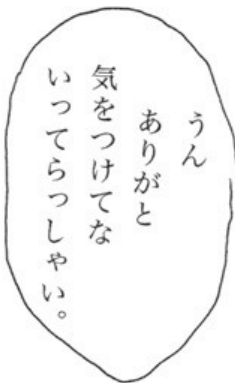 うん
ありがと
気をつけてな
いってらっしゃい。